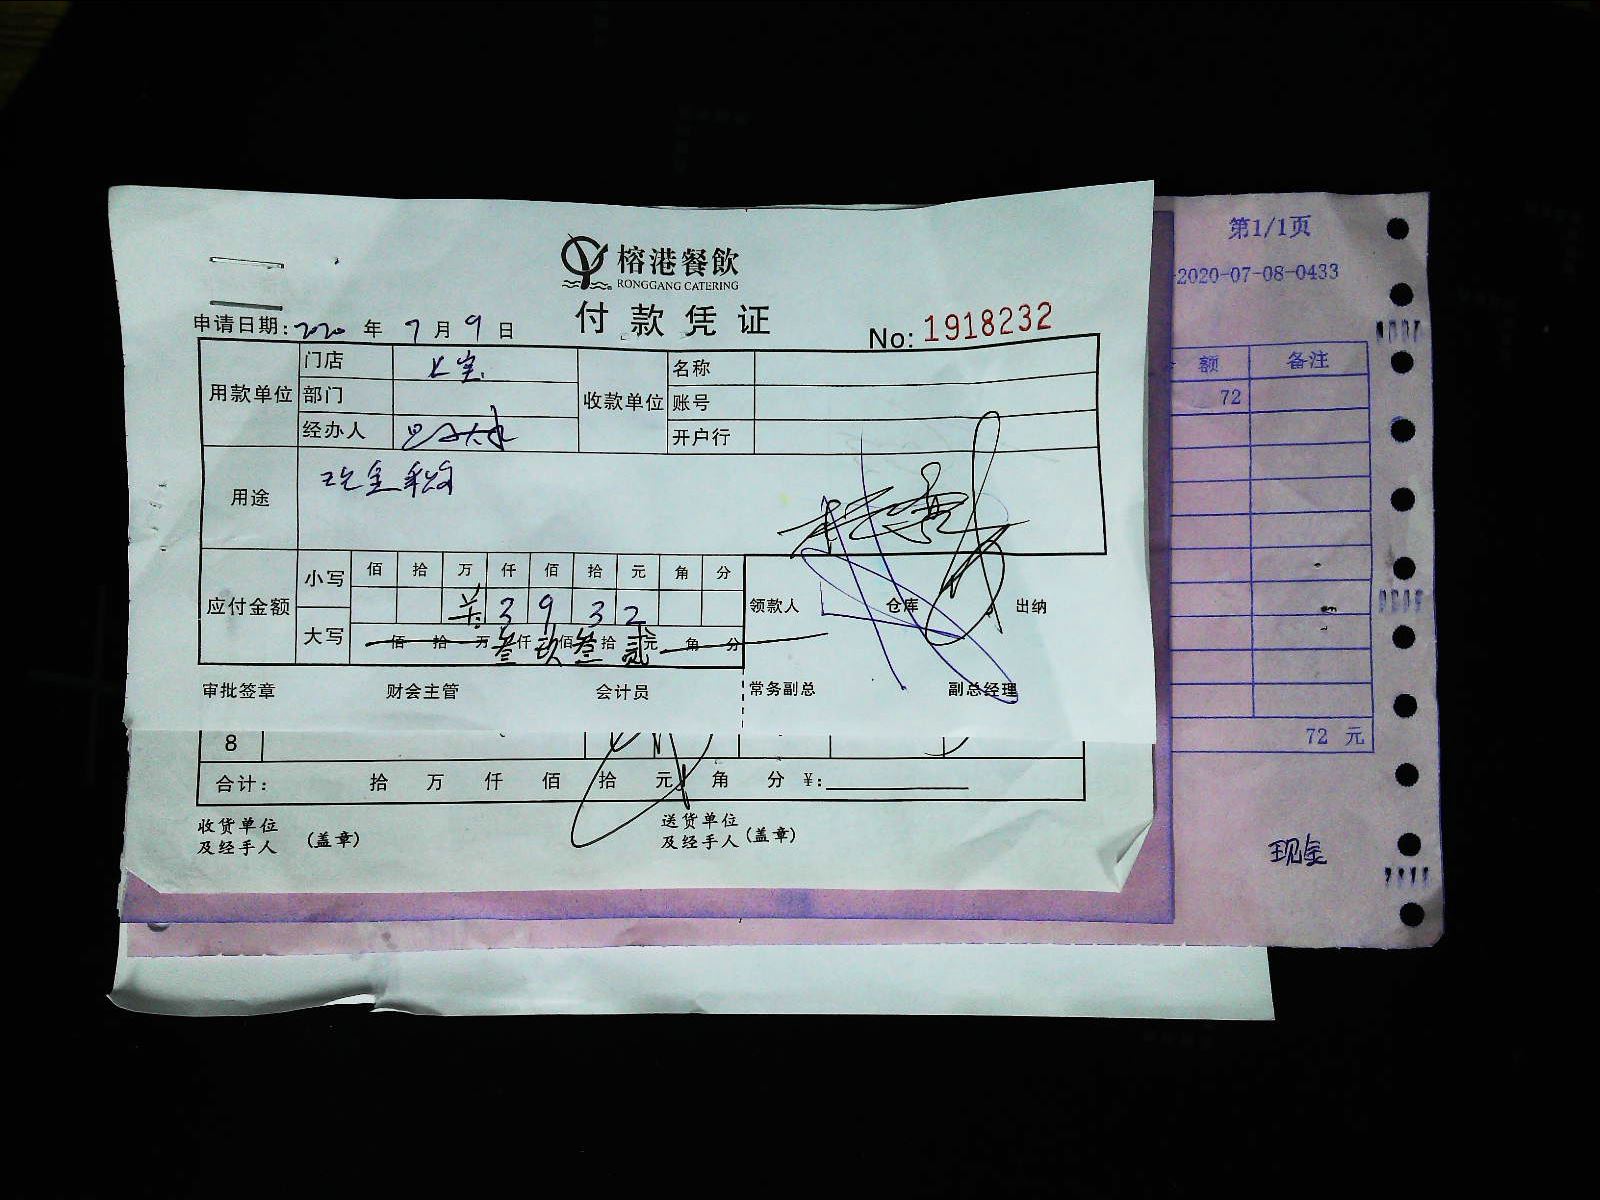 榕港餐飲
RONGGANG CATERING
付款凭证
No: 1918232
申请日期: 2020 年 7 月 9 日
用款单位 门店 收款单位 名称
部门 账号
经办人 开户行
用途 现金
应付金额 小写 佰 拾 万 仟 佰 拾 元 角 分
3 9 3 2
大写 佰 拾 万 叁 仟 玖 佰 叁 拾 贰 元 角 分
领款人 仓库 出纳
审批签章 财会主管 会计员 常务副总 副总经理
8
合计: 拾 万 仟 佰 拾 元 角 分 ¥:
收货单位 及经手人 (盖章) 送货单位 及经手人 (盖章)
第1/1页
-2020-07-08-0433
额 备注
72
72 元
现金